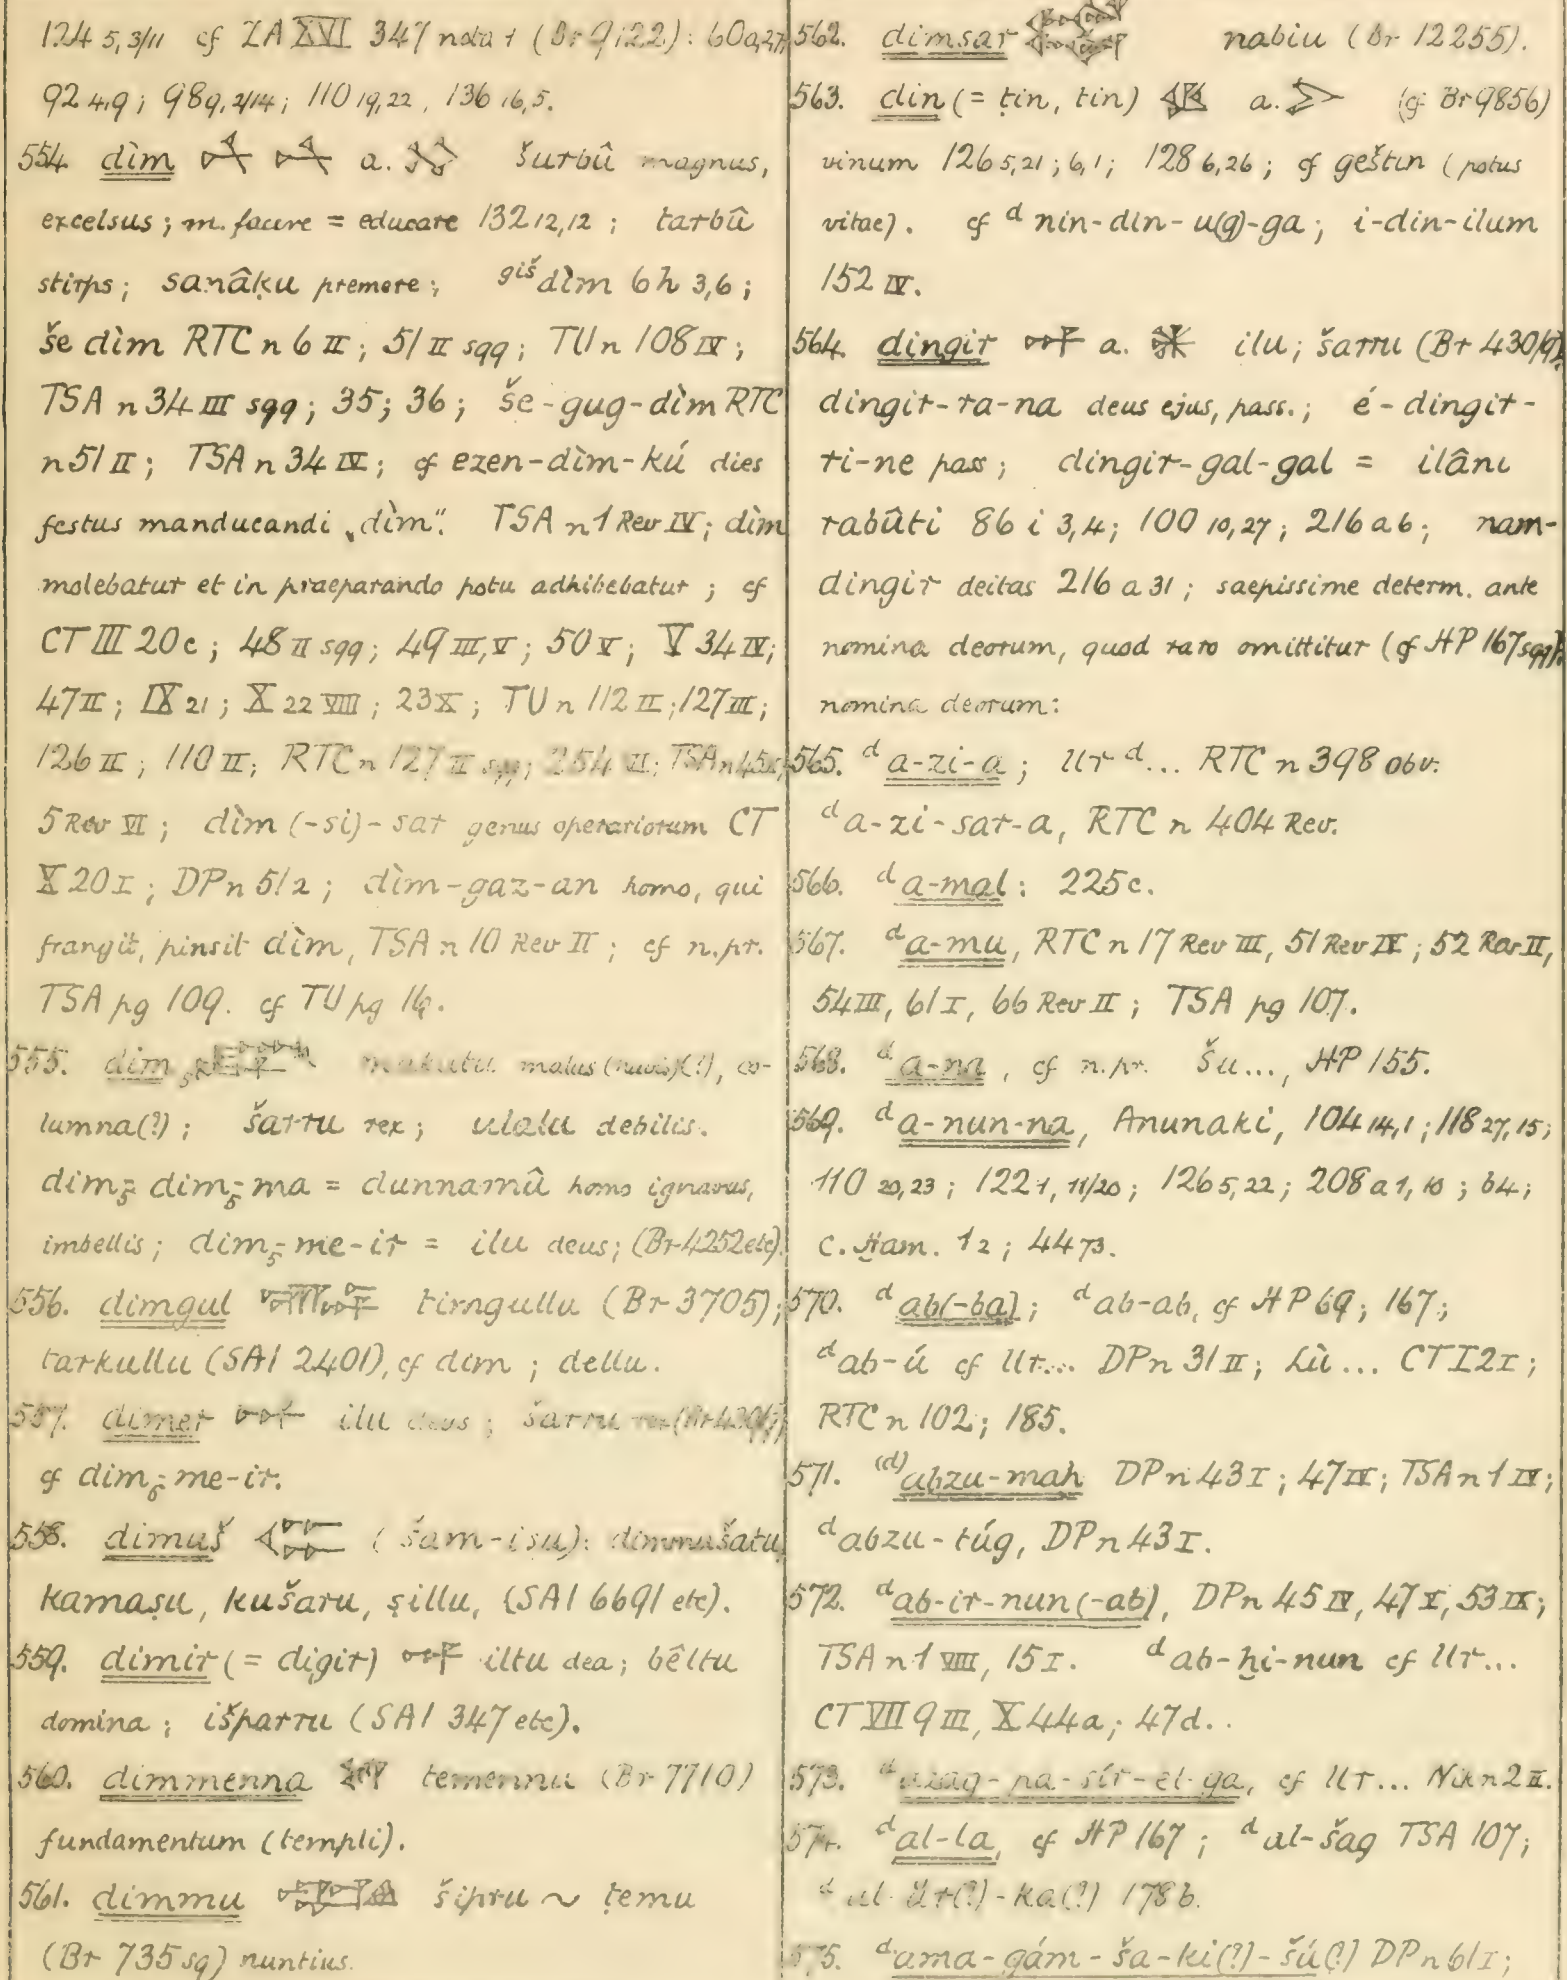 124 5, 3/11 cf ZA XVI 347 nota 1 (Br 9122): 60a,27,
92 4,9; 98 9, 2/14; 110 19,22, 136 16,5.
554. dìm a. šurbû magnus,
excelsus; m. facere = educare 132 12,12; tarbû
stirps; sanâḳu premere; giš dìm 6h 3,6;
še dìm RTC n 6 II; 51 II sqq; TU n 108 IV;
TSA n 34 III sqq; 35; 36; še-gug-dìm RTC
n 51 II; TSA n 34 IV; cf ezen-dìm-kú dies
festus manducandi „dìm“. TSA n 1 Rev IV; dìm
molebatur et in praeparando potu adhibebatur; cf
CT III 20c; 48 II sqq; 49 III, V; 50 V; V 34 IV;
47 II; IX 21; X 22 VIII; 23 X; TU n 112 II; 127 III;
126 II; 110 II; RTC n 127 II sqq; 254 II; TSA n 45
5 Rev VI; dìm (-si)-sar genus operariorum CT
X 20 I; DP n 512; dìm-gaz-an homo, qui
frangit, pinsit dìm, TSA n 10 Rev II; cf n. pr.
TSA pg 109. cf TU pg 16.
555. dim5 makutu malus (navis)(?), co-
lumna(?); šarru rex; ulalu debilis.
dim5-dim5-ma = dunnamû homo ignavus,
imbellis; dim5-me-ir = ilu deus; (Br 4252 etc).
556. dimgul timgullu (Br 3705);
tarkullu (SAI 2401), cf dim; dellu.
557. dimer ilu deus; šarru rex
cf dim5-me-ir.
558. dimuš (šam-iṣu): dimmušatu,
kamaṣu, kušaru, ṣillu, (SAI 6691 etc).
559. dimir (= digir) iltu dea; bêltu
domina; išparru (SAI 347 etc).
560. dimmenna temennu (Br 7710)
fundamentum (templi).
561. dimmu šipru ~ ṭemu
(Br 735 sq) nuntius.
562. dimsar nabiu (Br 12255).
563. din (= ṭin, tin) a. (cf Br 9856)
vinum 126 5,21; 6,1; 128 6,26; cf geštin (potus
vitae). cf d nin-din-u(g)-ga; i-din-ilum
152 IV.
564. dingir a. ilu; šarru (Br 430/9)
dingir-ra-na deus ejus, pass.; é-dingir-
ri-ne pass; dingir-gal-gal = ilâni
rabûti 86 i 3,4; 100 10,27; 216 a 6; nam-
dingir deitas 216 a 31; saepissime determ. ante
nomina deorum, quod raro omittitur (cf HP 167 sqq).
nomina deorum:
565. d a-zi-a; Ur d... RTC n 398 obv.
d a-zi-sar-a, RTC n 404 Rev.
566. d a-mal: 225c.
567. d a-mu, RTC n 17 Rev III, 51 Rev IV; 52 Rev II,
54 III, 61 I, 66 Rev II; TSA pg 107.
568. d a-na, cf n. pr. Šu..., HP 155.
569. d a-nun-na, Anunaki, 104 14,1; 118 27,15;
110 20,23; 122 1, 11/20; 126 5,22; 208 a 1, 10; b4;
C. Ḫam. 1 2; 44 73.
570. d ab(-ba); d ab-ab, cf HP 69; 167;
d ab-ú cf Ur... DP n 31 II; Lù... CT I 2 I;
RTC n 102; 185.
571. (d) abzu-maḫ DP n 43 I; 47 IV; TSA n 1 IV;
d abzu-túg, DP n 43 I.
572. d ab-ir-nun(-ab), DP n 45 IV, 47 I, 53 IX;
TSA n 1 VIII, 15 I. d ab-ḫi-nun cf Ur...
CT VII 9 III, X 44a; 47d.
573. d azag-pa-sír-el-ga, cf Ur... Nik n 2 II.
574. d al-la, cf HP 167; d al-šag TSA 107;
d al-úr(?)-ka(?) 178 b.
575. d ama-gám-ša-ki(?)-šú(?) DP n 61 I;